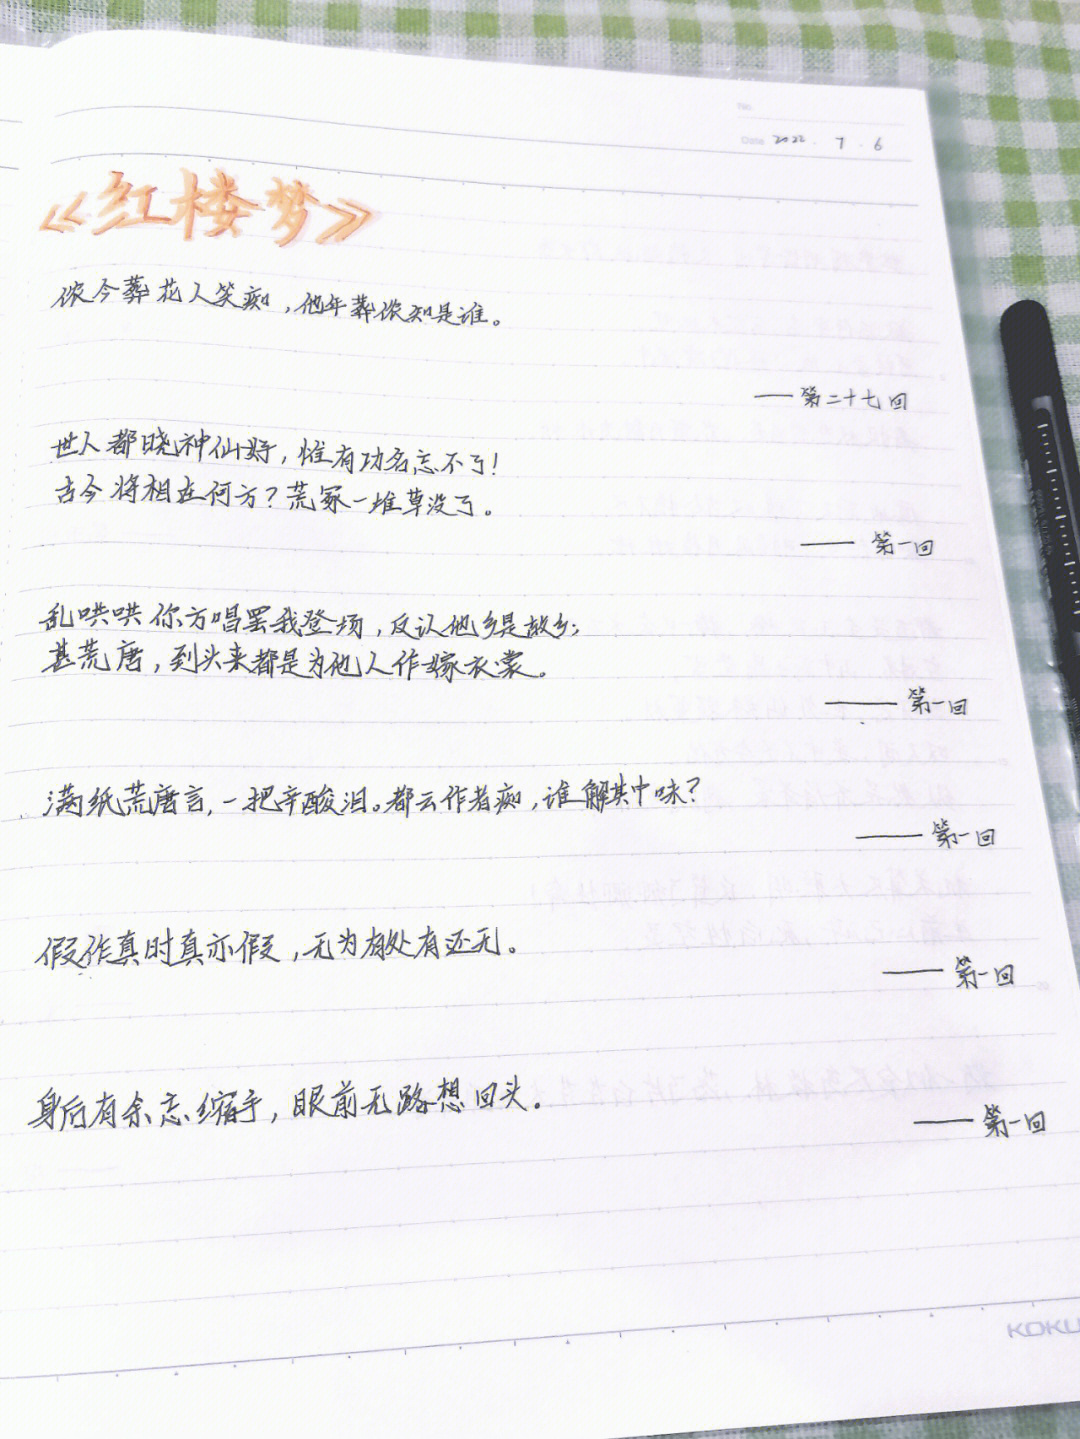 No.
Date 2022. 7. 6
《红楼梦》
侬今葬花人笑痴,他年葬侬知是谁。
——第二十七回
世人都晓神仙好,惟有功名忘不了!
古今将相在何方?荒冢一堆草没了。
——第一回
乱哄哄你方唱罢我登场,反认他乡是故乡;
甚荒唐,到头来都是为他人作嫁衣裳。
——第一回
满纸荒唐言,一把辛酸泪。都云作者痴,谁解其中味?
——第一回
假作真时真亦假,无为有处有还无。
——第一回
身后有余忘缩手,眼前无路想回头。
——第一回
KOKU